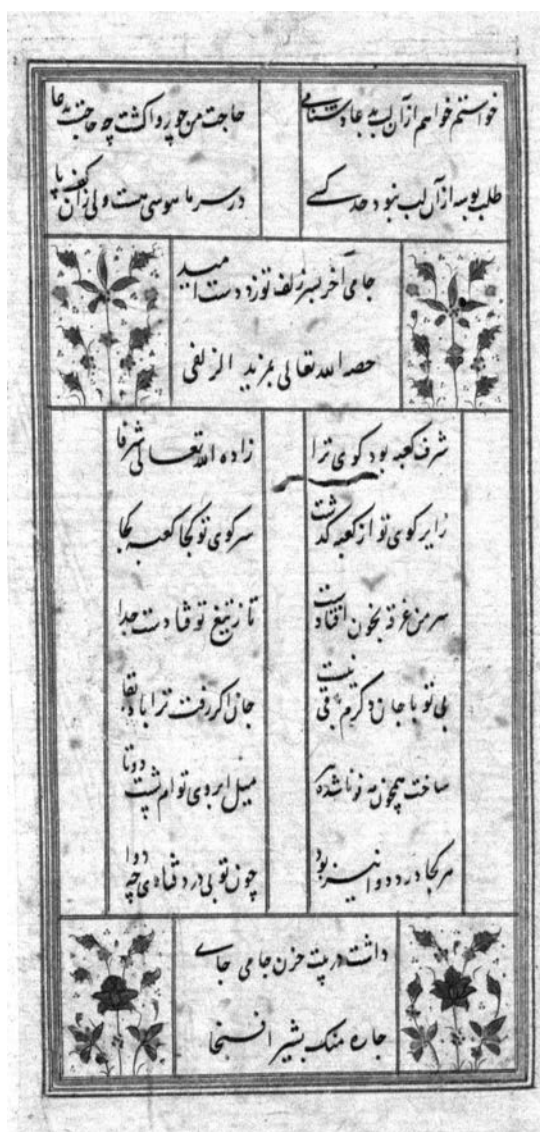 خواستم خواهم از آن لب بدعا دشنامی
حاجت من چو روا گشت چه حاجت بدعا
طلب بوسه از آن لب نبود حد کسی
در سر ما هوسی هست ولی زان کف پا
جامی آخر بسر زلف تو زد دست امید
خصه الله تعالی بمزید الزلفی
شرف کعبه بود کوی ترا
زاده الله تعالی شرفا
زایر کوی تو از کعبه گذشت
سر کوی تو کجا کعبه کجا
سر من غرقه بخون افتادست
تا ز تیغ تو فتادست جدا
بی تو با جان دگرم نیست بقی
جان اگر رفت ترا باد بقا
ساخت همچون مه نو ناشده پیر
میل ابروی توام پشت دوتا
هر کجا درد دوا نیز بود
چون تو بی درد فتادی چه دوا
داشت در بیت حزن جامی جای
جاء منک بشیر افنجا